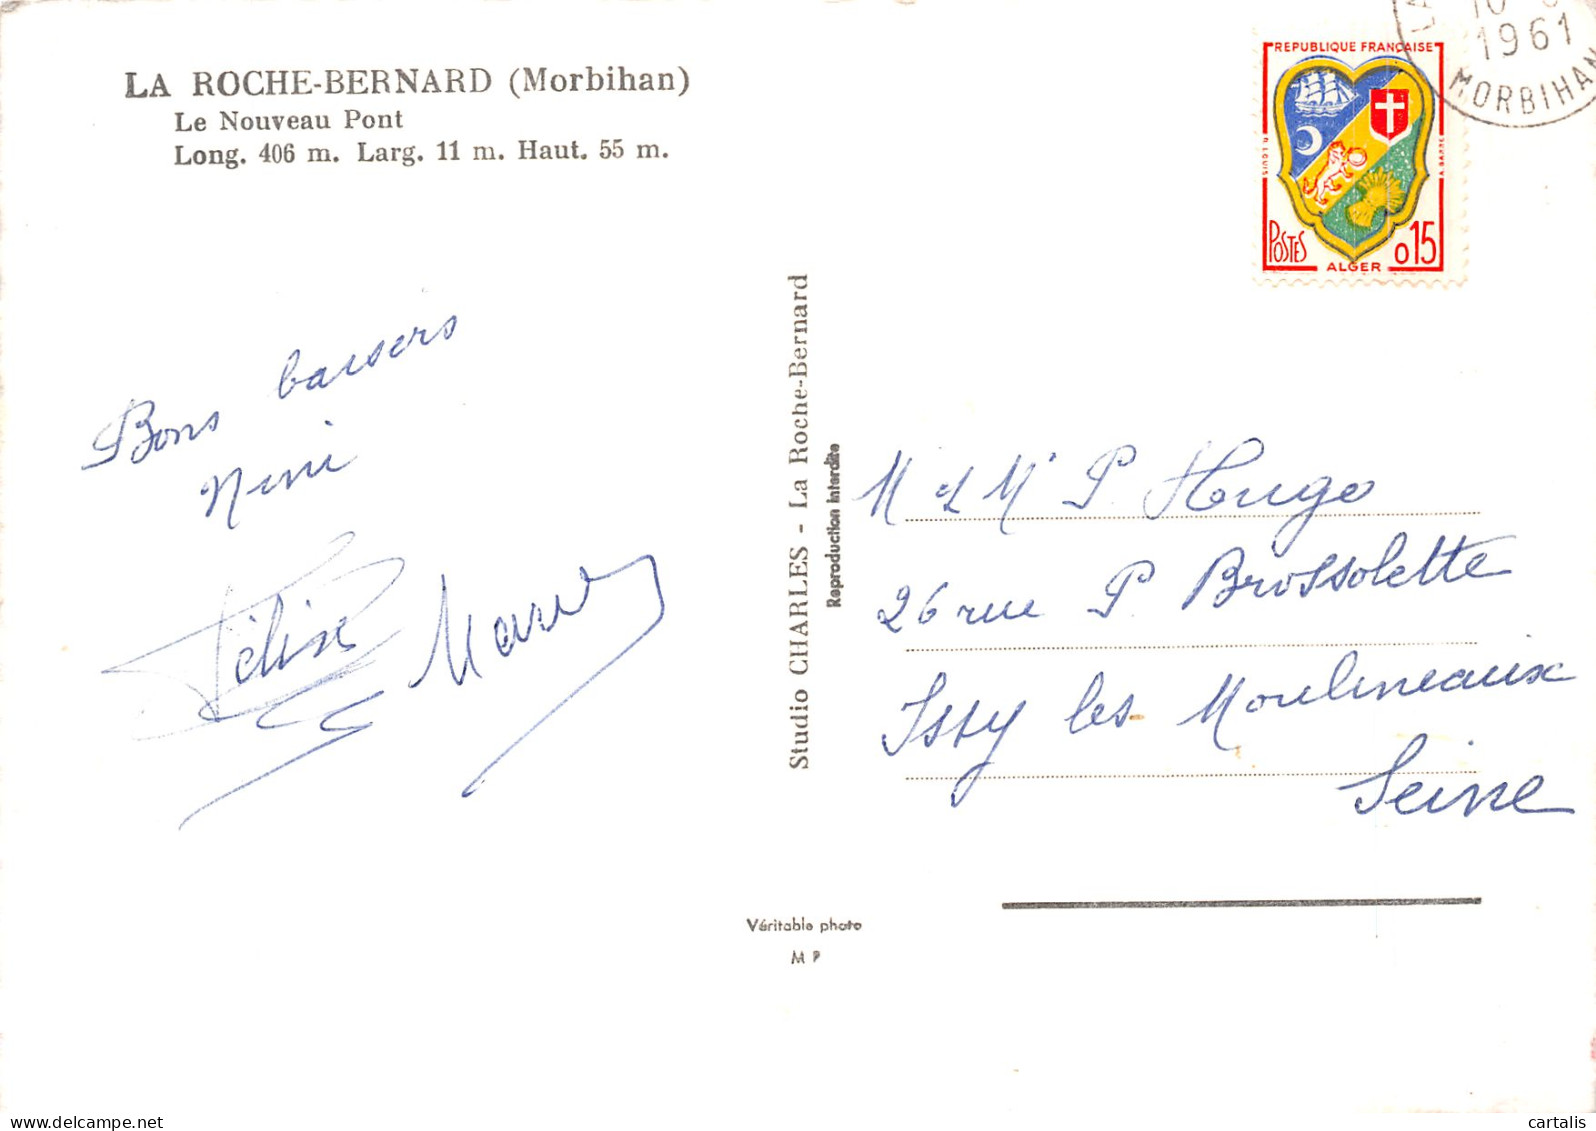 LA ROCHE-BERNARD (Morbihan)
Le Nouveau Pont
Long. 406 m. Larg. 11 m. Haut. 55 m.
Bons baisers
Nini
Félix
Studio CHARLES - La Roche-Bernard
Reproduction interdite
Véritable photo
M P
REPUBLIQUE FRANÇAISE
POSTES
0,15
ALGER
LA
10
1961
MORBIHAN
M et Me P. Hugo
26 rue P. Brossolette
Issy les Moulineaux
Seine
cartalis